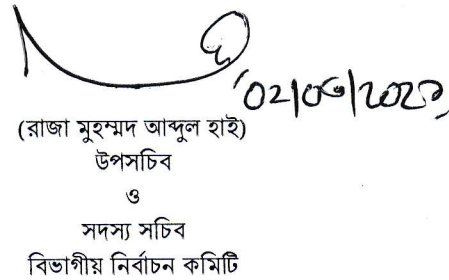 ০২/০৩/২০২১
(রাজা মুহম্মদ আব্দুল হাই)
উপসচিব
ও
সদস্য সচিব
বিভাগীয় নির্বাচন কমিটি